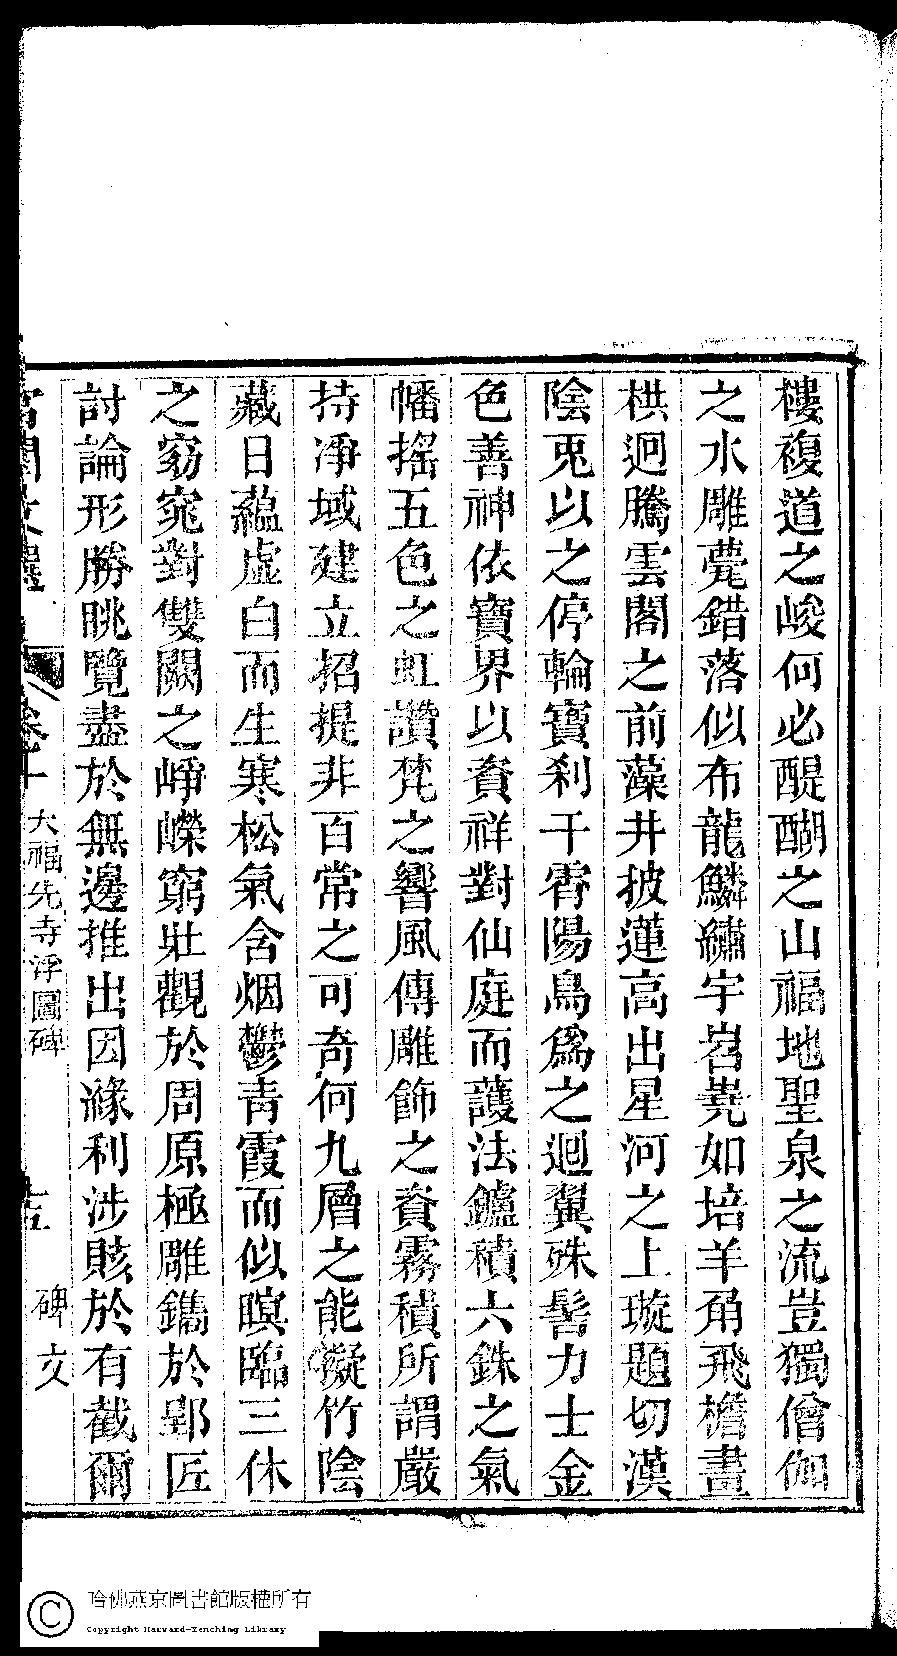 樓複道之峻何必醍醐之山福地聖泉之流豈獨僧伽
之水雕甍錯落似布龍鱗繡宇岧嶤如培羊角飛檐畫
栱迥騰雲閣之前藻井披蓮高出星河之上璇題切漢
陰兎以之停輪寶刹干霄陽鳥爲之迴翼殊髻力士金
色善神依寶界以資祥對仙庭而護法鑪積六銖之氣
幡搖五色之虹讚梵之響風傳雕飾之資霧積所謂嚴
持凈域建立招提非百常之可奇何九層之能擬竹陰
藏日蘊虛白而生寒松氣含烟鬱青霞而似暝臨三休
之窈窕對雙闕之崢嶸窮壯觀於周原極雕鐫於郢匠
討論形勝眺覽盡於無邊推出因緣利涉賅於有截爾
文選 卷十 大福先寺浮圖碑 碑文
哈佛燕京圖書館版權所有
Copyright Harvard-Yenching Library